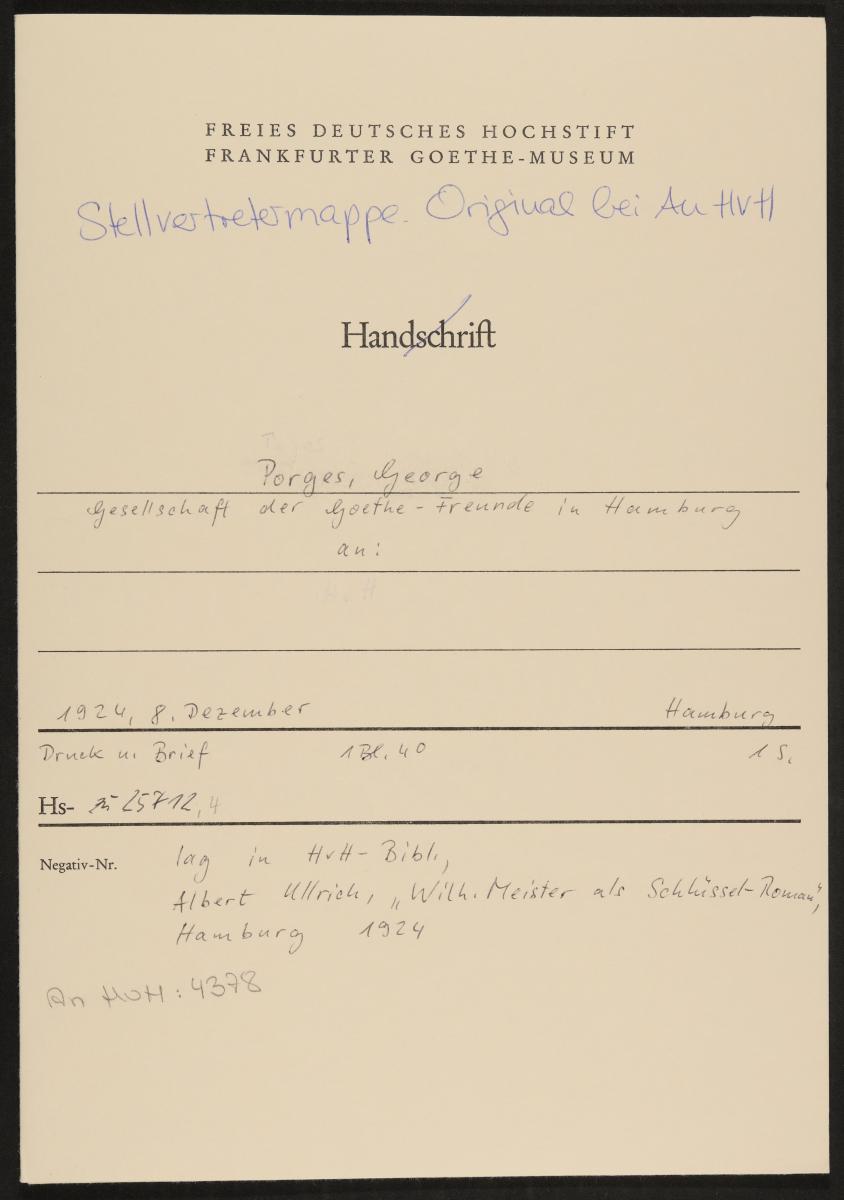 FREIES DEUTSCHES HOCHSTIFT
FRANKFURTER GOETHE-MUSEUM
Stellvertretermappe. Original bei An HvH
Handschrift
Porges, George
Gesellschaft der Goethe-Freunde in Hamburg
an:
HvH
1924, 8. Dezember Hamburg
Druck u. Brief 1 Bl. 4° 1 S.
Hs- zu 25712,4
Negativ-Nr. lag in HvH-Bibl.,
Albert Ullrich, „Wilh. Meister als Schlüssel-Roman",
Hamburg 1924
An HvH: 4378